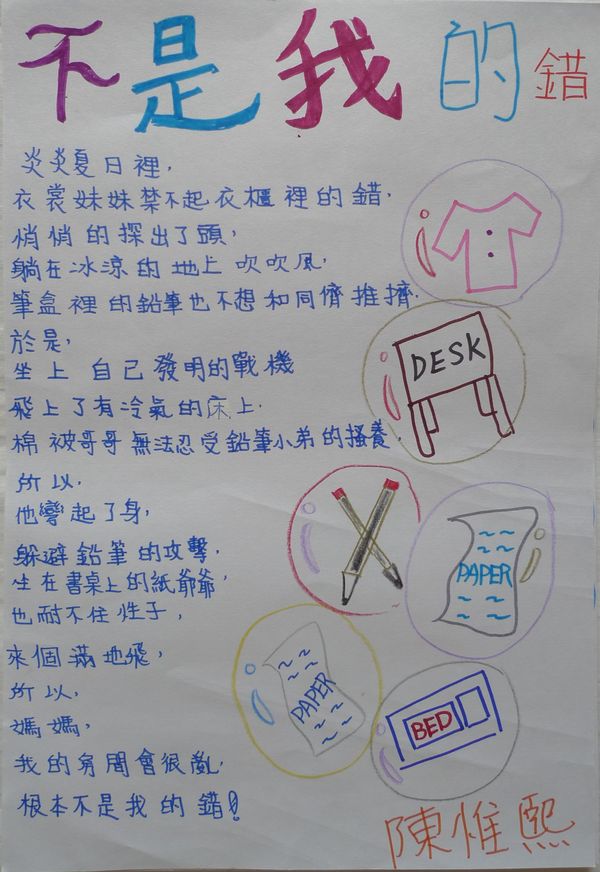 不是我的錯
炎炎夏日裡,
衣裳妹妹禁不起衣櫃裡的錯,
悄悄的探出了頭,
躺在冰涼的地上吹吹風,
筆盒裡的鉛筆也不想和同儕推擠.
於是,
坐上自己發明的戰機
飛上了有冷氣的床上.
棉被哥哥無法忍受鉛筆小弟的搔養,
所以,
他彎起了身,
躲避鉛筆的攻擊,
坐在書桌上的紙爺爺,
也耐不住性子,
來個滿地飛,
所以,
媽媽,
我的房間會很亂,
根本不是我的錯!
DESK
PAPER
PAPER
BED
陳惟熙